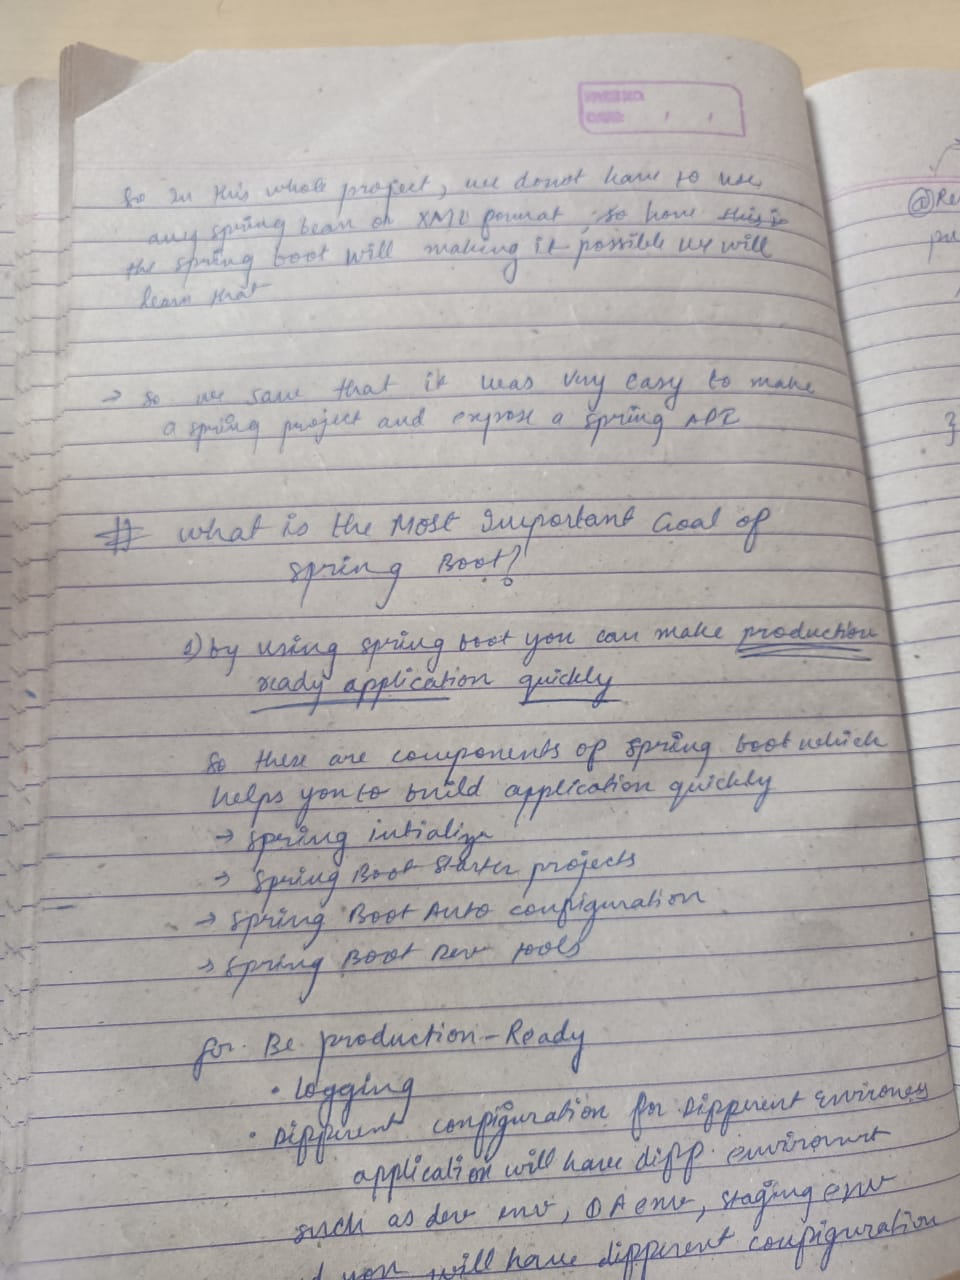 PAGE NO.
DATE: / /
So In this whole project, we donot have to use
any spring bean or XML format. So how this is
the spring boot will making it possible we will
learn that
→ So we saw that it was very easy to make
a spring project and expose a spring API
# What is the Most Important Goal of
Spring Boot?
1) by using spring boot you can make production
ready application quickly
So there are components of spring boot which
helps you to build application quickly
→ Spring intializr
→ Spring Boot Starter projects
→ Spring Boot Auto configuration
→ Spring Boot Dev tools
for Be production-Ready
• Logging
• Different configuration for Different Environey
application will have diff. enviromnt
such as dev env, QA env, staging env
you will have different configuration
@Re
}